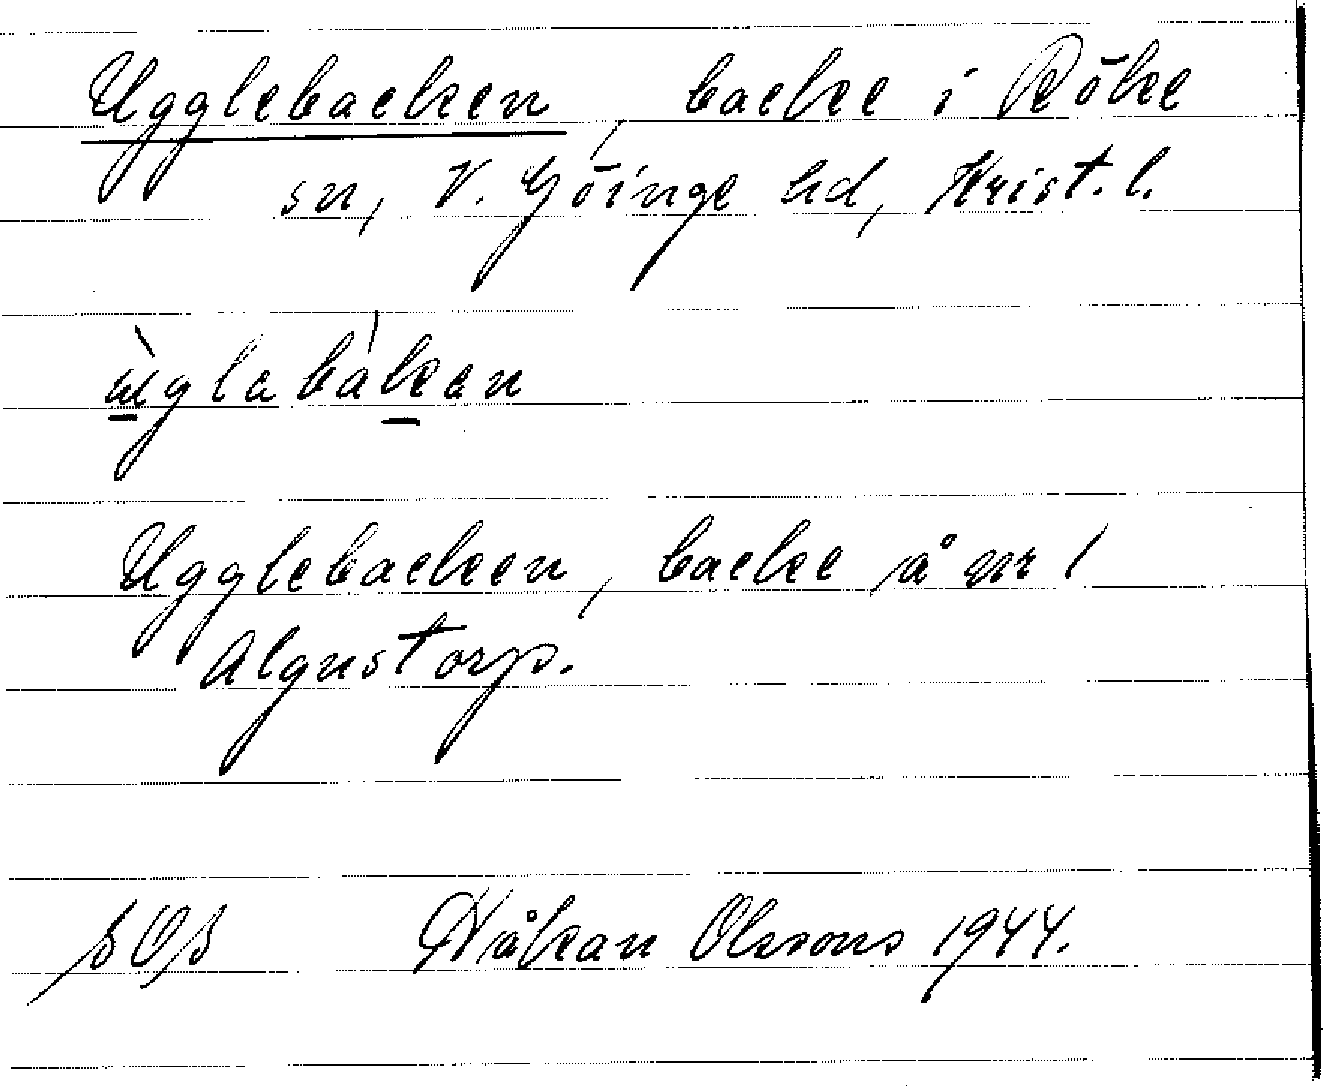 Ugglebacken, backe i Röke
sn, V. Göinge hd, Krist. l.
ùglabàkan
Ugglebacken, backe å nr 1
Algustorp.
Håkan Olssons 1944.